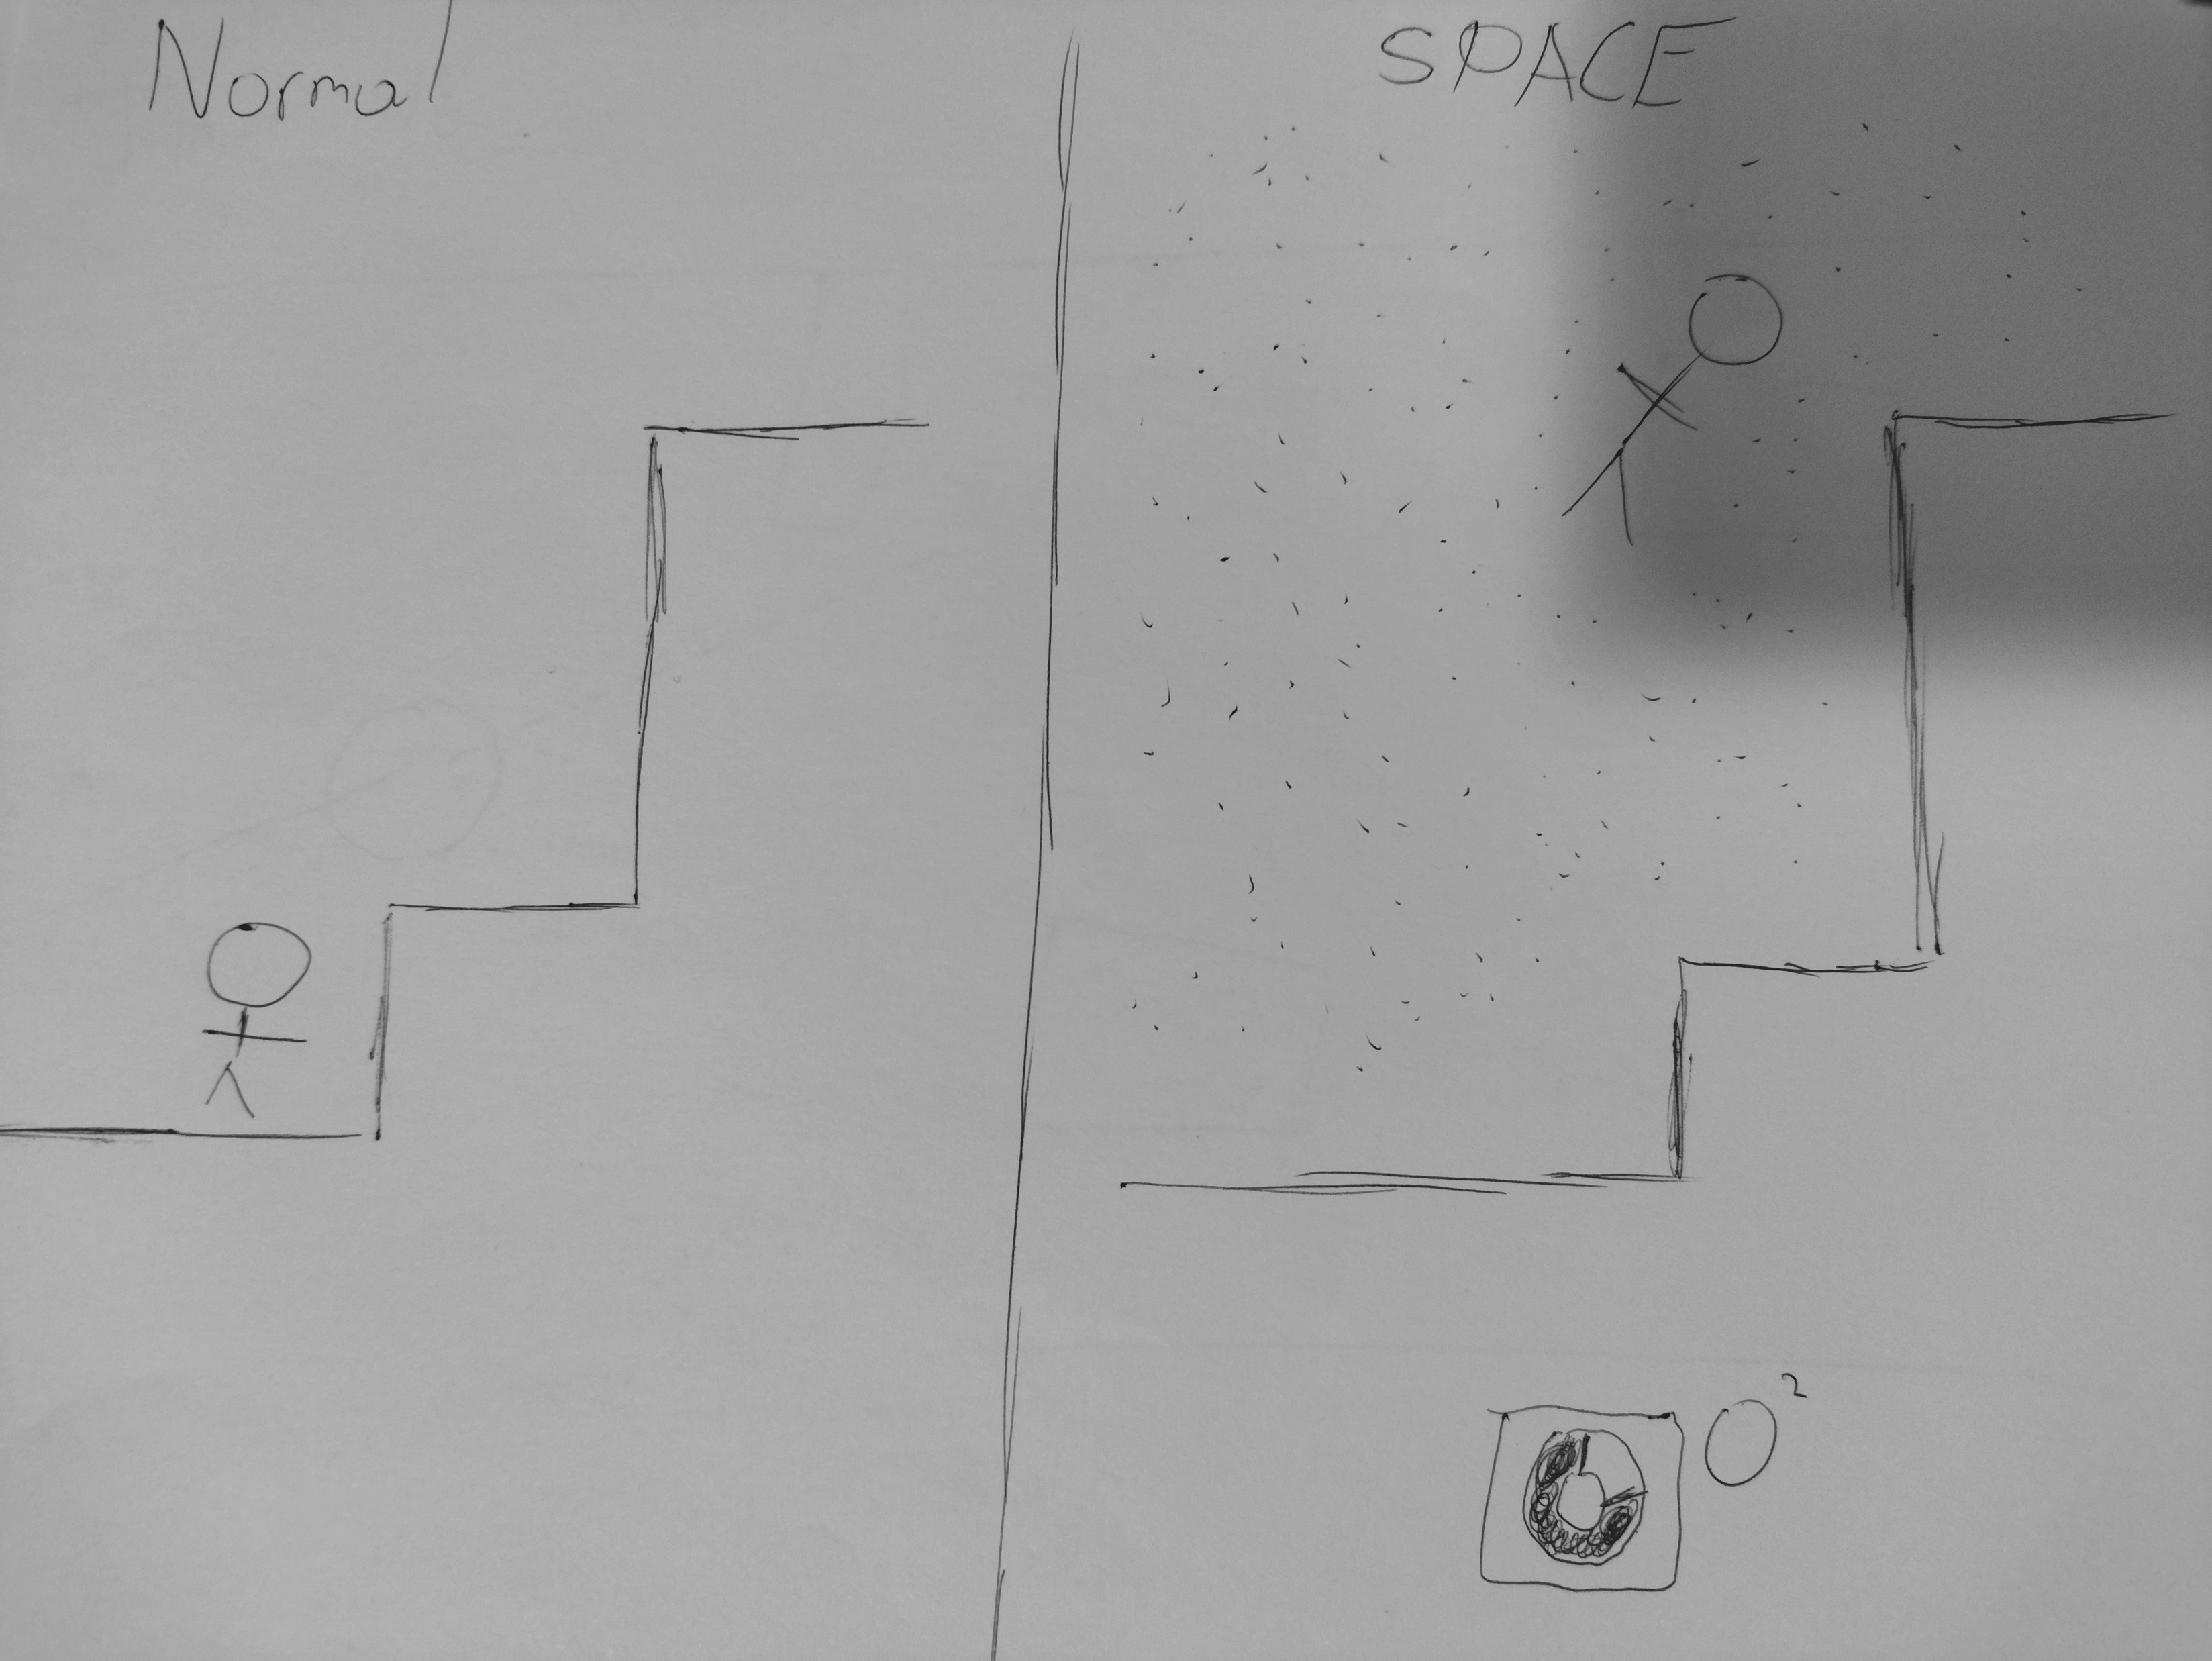 Normal
SPACE
O²